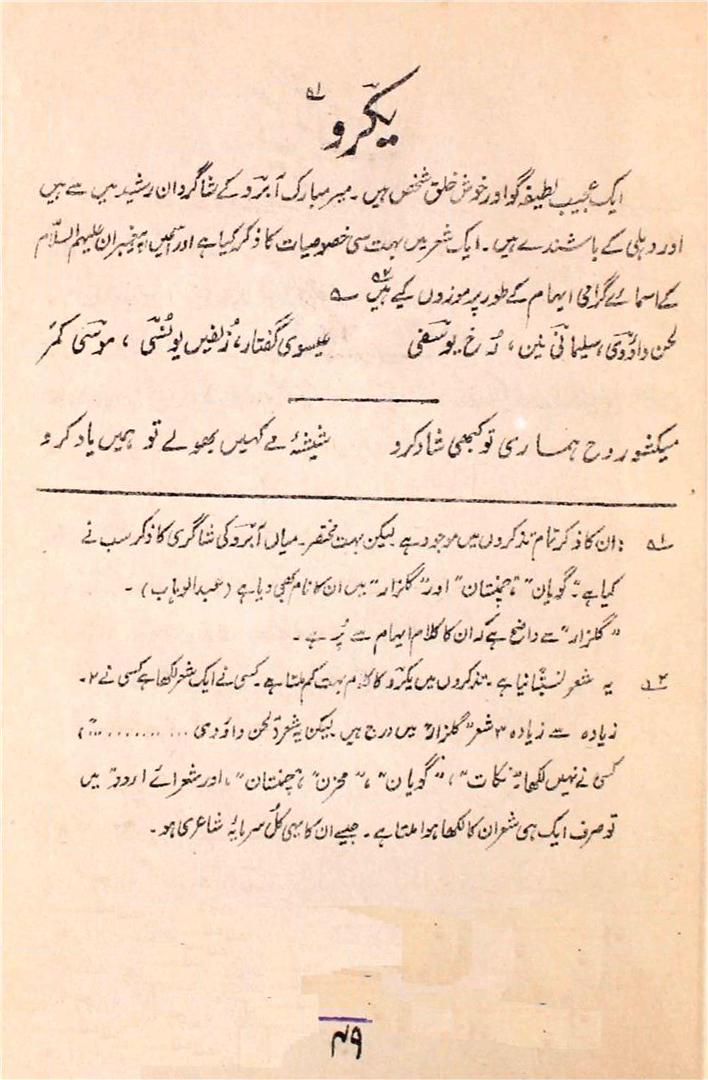 یکرو ؂۱
ایک عجیب لطیفہ گو اور خوش خلق شخص ہیں۔ میر مبارک آبرو کے شاگردان رشید میں سے ہیں
اور دہلی کے باشندے ہیں۔ ایک شعر میں بہت سی خصوصیات کا ذکر کیا ہے اور اسمیں پیغمبران علیہم السلام
کے اسمائے گرامی ایہام کے طور پر موزوں کیے ہیں ؂۲ ؎
لحن داؤدی، سلیمانی نین، رُخ یوسفی عیسوی گفتار، زُلفیں یونسی، موسیٰ کمر
میکشو روح ہماری تو کبھی شاد کرو شیشۂ مے کہیں بھولے تو ہمیں یاد کرو
؂۱ : ان کا ذکر تمام تذکروں میں موجود ہے لیکن بہت مختصر۔ میاں آبرو کی شاگری کا ذکر سب نے
کیا ہے۔ "گویان" "چمنستان" اور "گلزار" میں ان کا نام بھی دیا ہے (عبدالوہاب)۔
"گلزار" سے واضح ہے کہ ان کا کلام ایہام سے پُر ہے۔
؂۲ یہ شعر نسبتاً نیا ہے۔ تذکروں میں یکرو کا کلام بہت کم ملتا ہے۔ کسی نے ایک شعر لکھا ہے کسی نے ۲۔
زیادہ سے زیادہ ۳ شعر "گلزار" میں درج ہیں لیکن یہ شعر (لحن داؤدی ............)
کسی نے نہیں لکھا "نکات"، "گویان"، "مخزن"، "چمنستان"، اور شعرائے اردو" میں
تو صرف ایک ہی شعر ان کا لکھا ہوا ملتا ہے۔ جیسے ان کا یہی کُل سرمایۂ شاعری ہو۔
۴۹